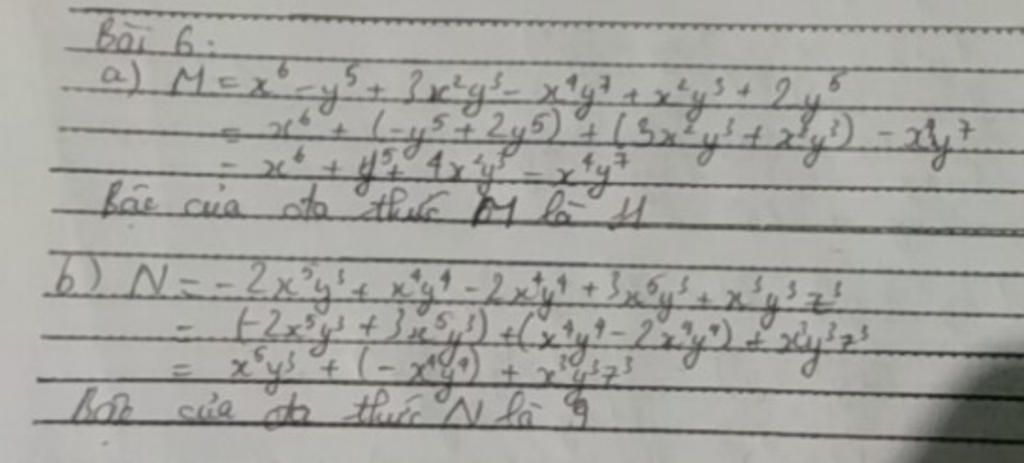 Bài 6:
a) M = x⁶ - y⁵ + 3x²y³ - x⁴y⁷ + x²y³ + 2y⁵
= x⁶ + (-y⁵ + 2y⁵) + (3x²y³ + x²y³) - x⁴y⁷
= x⁶ + y⁵ + 4x²y³ - x⁴y⁷
Bậc của đa thức M là 11
b) N = -2x⁵y³ + x⁴y⁴ - 2x⁴y⁴ + 3x⁵y³ + x³y³z³
= (-2x⁵y³ + 3x⁵y³) + (x⁴y⁴ - 2x⁴y⁴) + x³y³z³
= x⁵y³ + (-x⁴y⁴) + x³y³z³
Bậc của đa thức N là 9